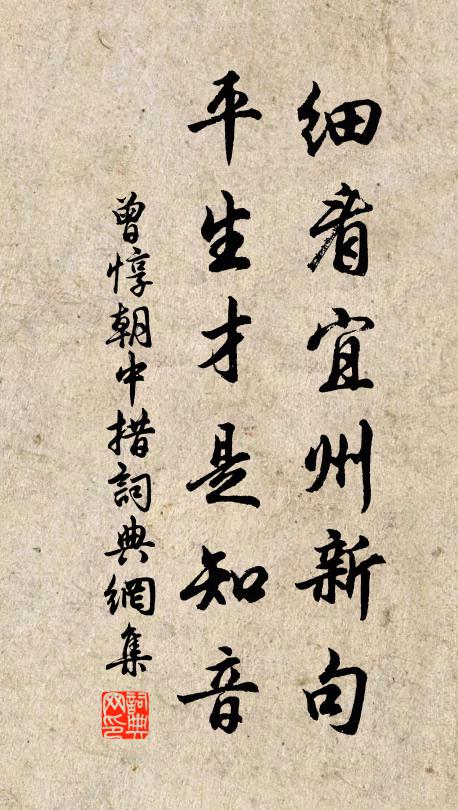 细看宜州新句
平生才是知音
曾惇朝中措詞典網集
詞典网印